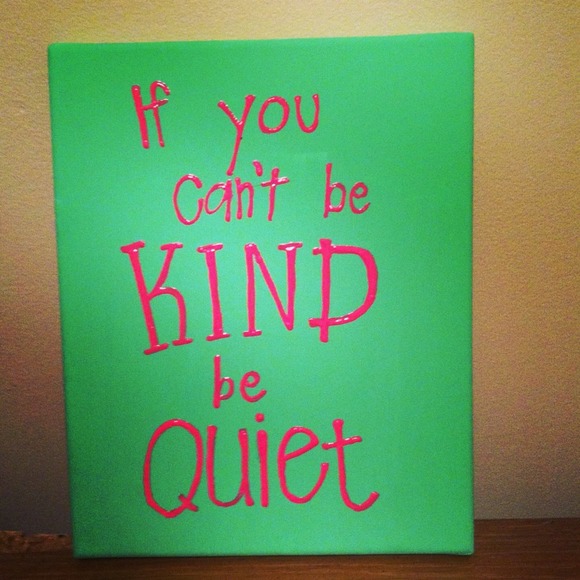 If you
can't be
KIND
be
Quiet